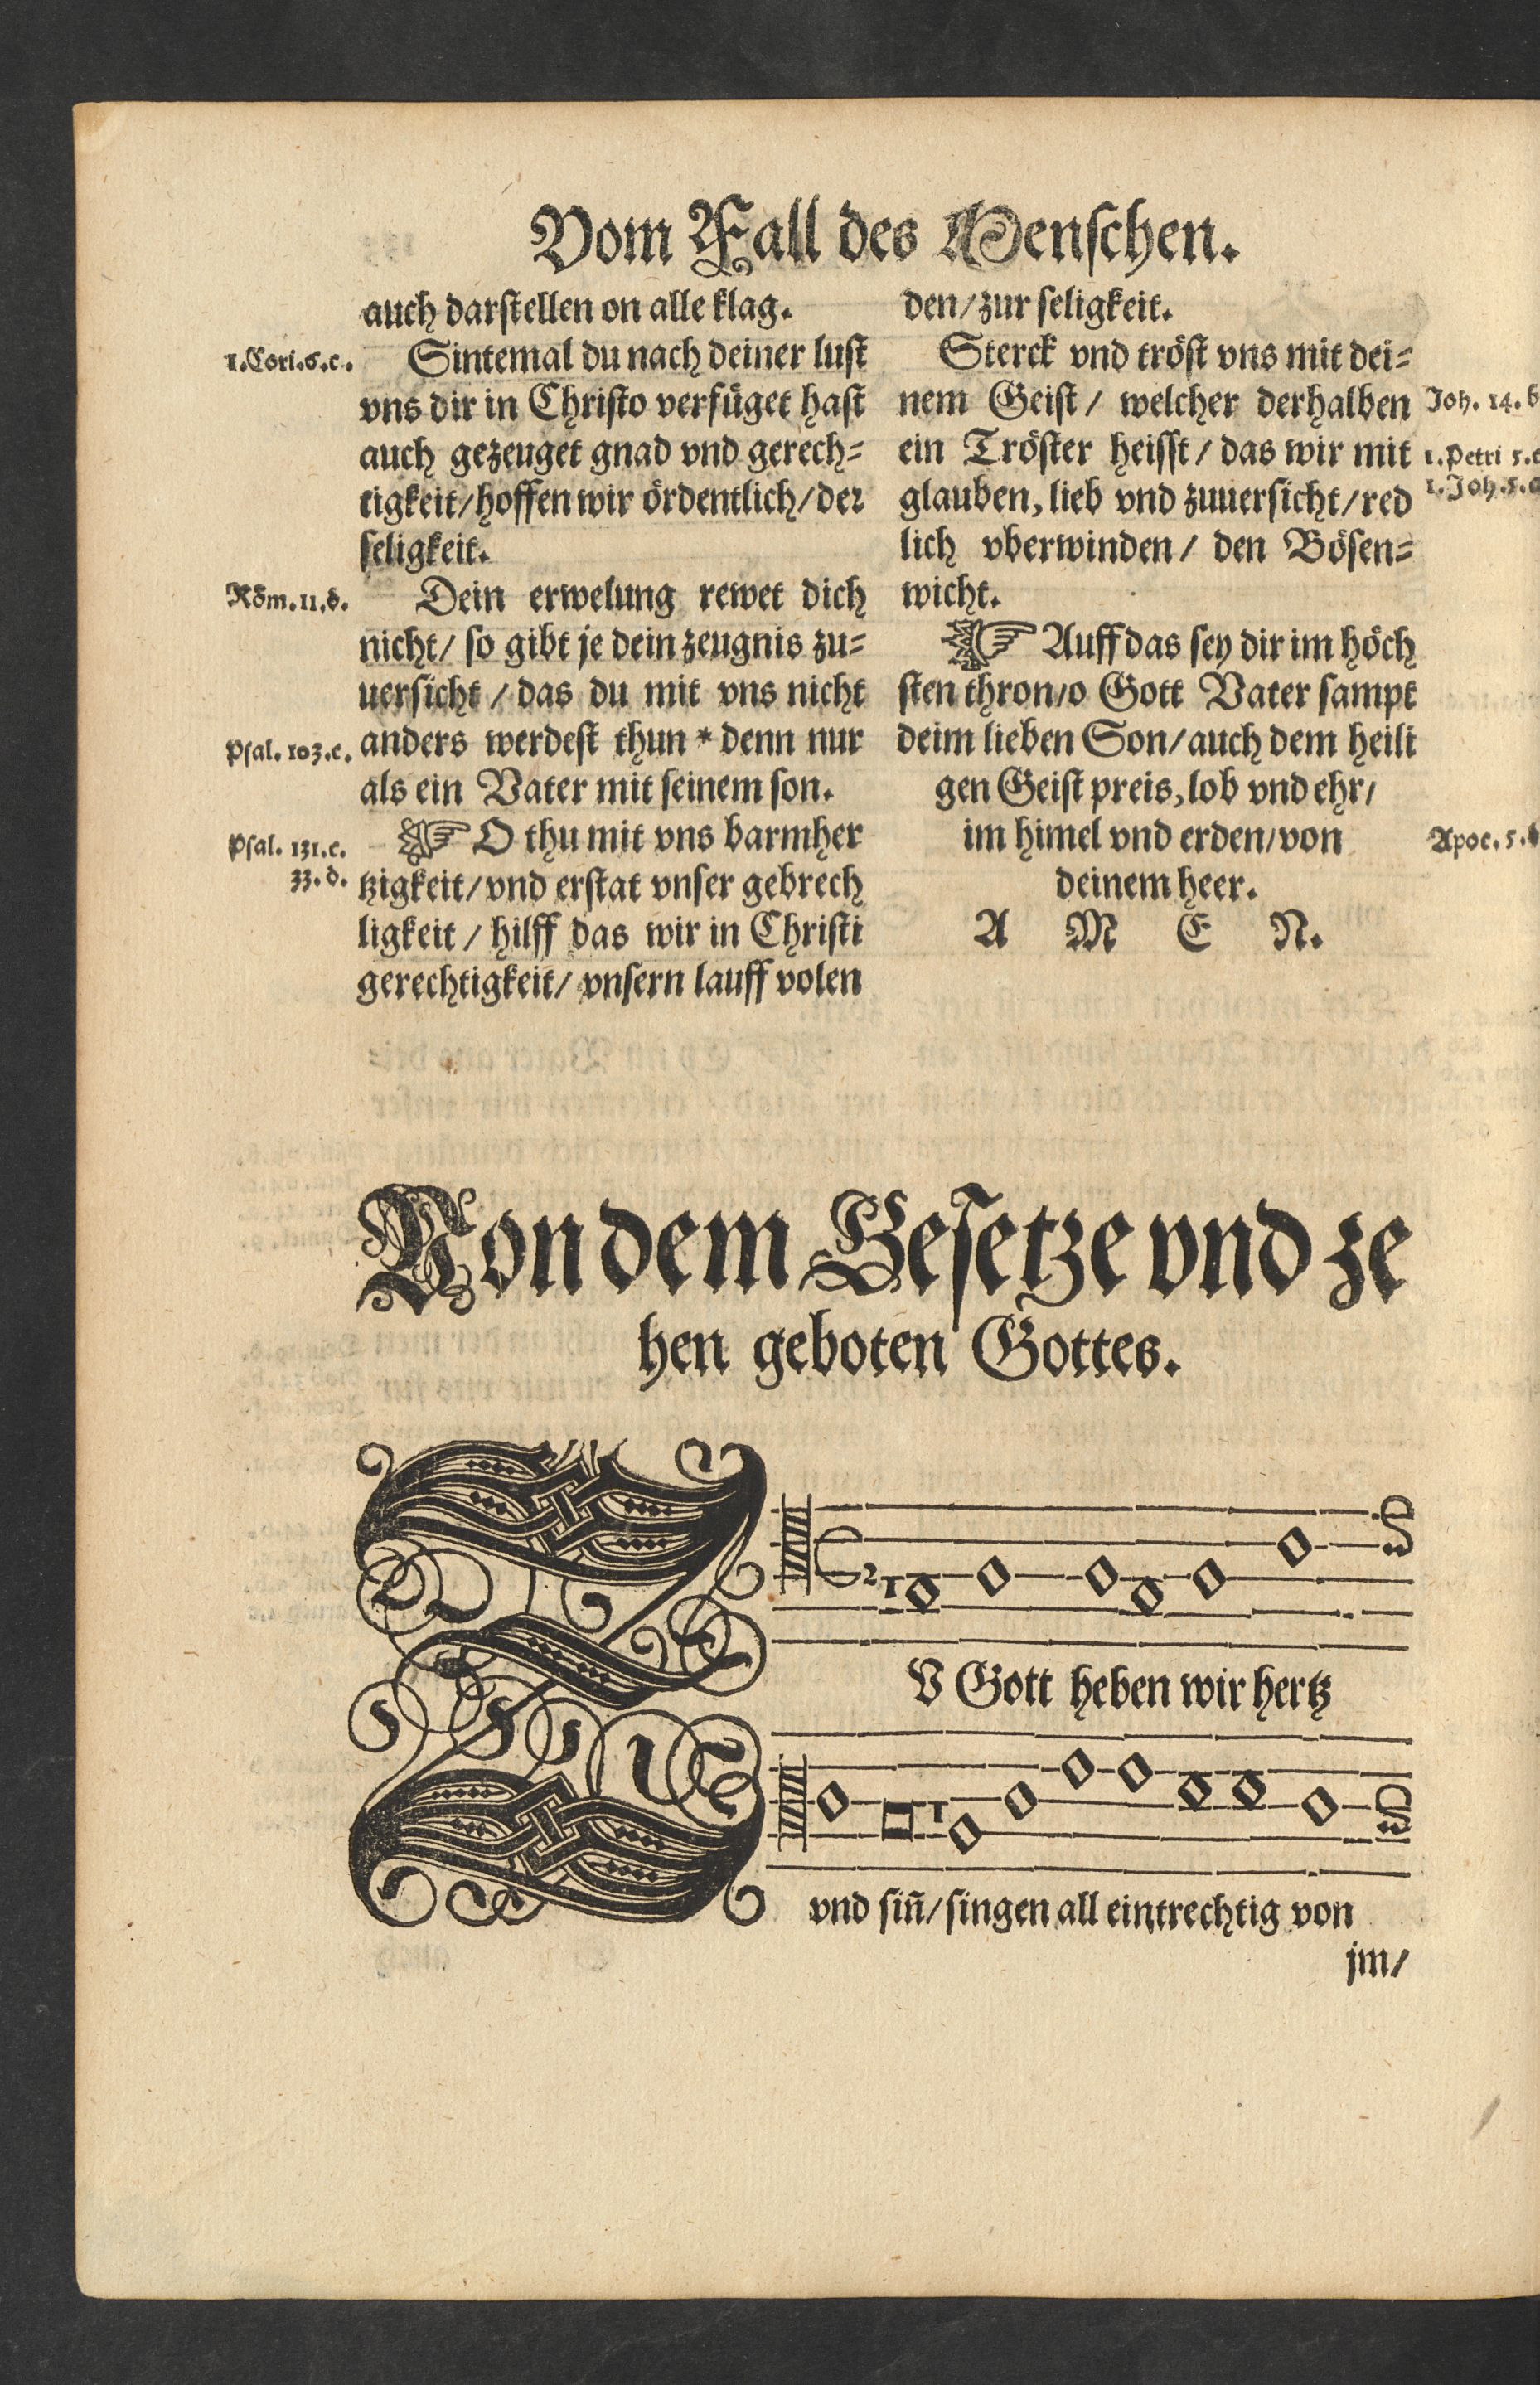 Vom Fall des Menschen.
auch darstellen on alle klag.
1.Cori.6.c.
Sintemal du nach deiner lust
vns dir in Christo verfüget hast
auch gezeuget gnad vnd gerech=
tigkeit/hoffen wir ördentlich/der
seligkeit.
Röm.11.d.
Dein erwelung rewet dich
nicht/ so gibt je dein zeugnis zu=
uersicht / das du mit vns nicht
Psal. 103.c.
anders werdest thun * denn nur
als ein Vater mit seinem son.
Psal. 131.c.
33.d.
☞ O thu mit vns barmher
tzigkeit/vnd erstat vnser gebrech
ligkeit / hilff das wir in Christi
gerechtigkeit/ vnsern lauff volen
den/zur seligkeit.
Sterck vnd tröst vns mit dei=
nem Geist / welcher derhalben
Joh. 14.b
ein Tröster heisst / das wir mit
1.Petri 5.
glauben, lieb vnd zuuersicht/red
1.Joh.5.
lich vberwinden / den Bösen=
wicht.
☞ Auff das sey dir im höch
sten thron/o Gott Vater sampt
deim lieben Son/auch dem heili
gen Geist preis, lob vnd ehr/
im himel vnd erden/von
Apoc.5.
deinem heer.
A M E N.
Von dem Gesetze vnd ze
hen geboten Gottes.
Z
V Gott heben wir hertz
vnd sin̄/singen all eintrechtig von
jm/